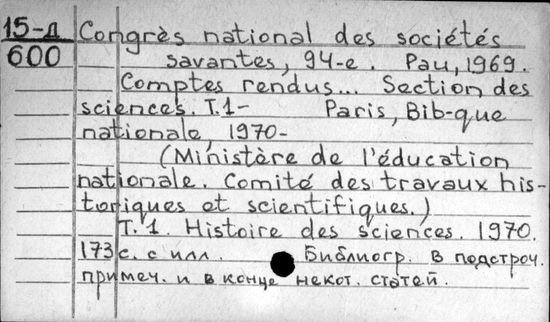 15-Д Congrès national des sociétés
600 savantes, 94-e. Pau, 1969.
Comptes rendus... Section des
sciences. T.1- Paris, Bib-que
nationale, 1970-
(Ministère de l'éducation
nationale. Comité des travaux his-
toriques et scientifiques.)
T.1. Histoire des sciences. 1970.
173 с. с илл. Библиогр. в подстроч.
примеч. и в конце некот. статей.